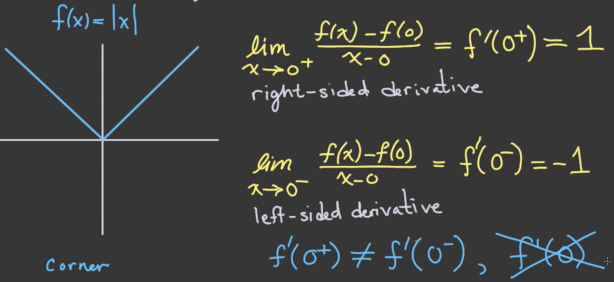 f(x) = |x|
lim x→0⁺ (f(x) - f(0))/(x - 0) = f'(0⁺) = 1
right-sided derivative
lim x→0⁻ (f(x) - f(0))/(x - 0) = f'(0⁻) = -1
left-sided derivative
f'(0⁺) ≠ f'(0⁻), f'(0)
Corner